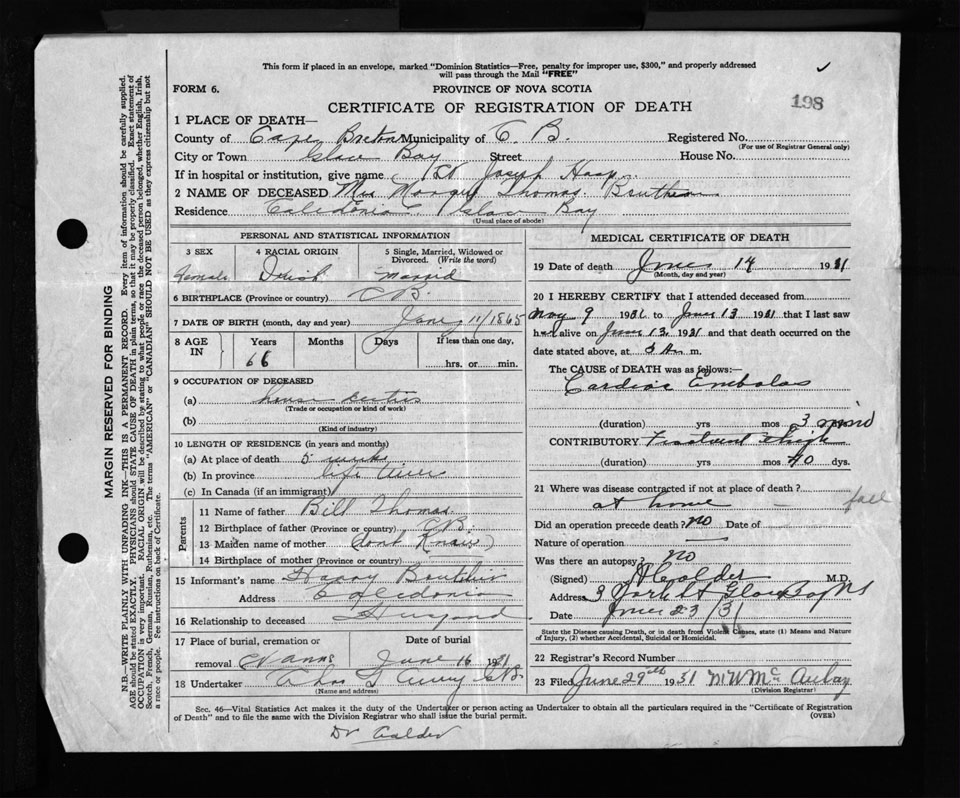 This form if placed in an envelope, marked "Dominion Statistics—Free, penalty for improper use, $300," and properly addressed
will pass through the Mail "FREE"
✓
FORM 6.
PROVINCE OF NOVA SCOTIA
198
CERTIFICATE OF REGISTRATION OF DEATH
1 PLACE OF DEATH—
County of Cape Breton Municipality of C. B. Registered No.
(For use of Registrar General only)
City or Town Glace Bay Street House No.
If in hospital or institution, give name St Joseph Hosp.
2 NAME OF DECEASED Mrs Thomas
Residence Caledonia Glace Bay
(Usual place of abode)
PERSONAL AND STATISTICAL INFORMATION
3 SEX 4 RACIAL ORIGIN 5 Single, Married, Widowed or
Divorced. (Write the word)
Female
6 BIRTHPLACE (Province or country) C B.
7 DATE OF BIRTH (month, day and year) 11/1865
8 AGE IN Years Months Days If less than one day,
66 hrs. or min.
9 OCCUPATION OF DECEASED
(a) house duties
(Trade or occupation or kind of work)
(b)
(Kind of industry)
10 LENGTH OF RESIDENCE (in years and months)
(a) At place of death 5 weeks
(b) In province life time
(c) In Canada (if an immigrant)
Parents
11 Name of father Bill Thomas
12 Birthplace of father (Province or country) C B.
13 Maiden name of mother dont Know
14 Birthplace of mother (Province or country)
15 Informant's name Harry
Address Caledonia
16 Relationship to deceased
17 Place of burial, cremation or Date of burial
removal June 16 1931
18 Undertaker G B.
(Name and address)
MEDICAL CERTIFICATE OF DEATH
19 Date of death June 14 1931
(Month, day and year)
20 I HEREBY CERTIFY that I attended deceased from
May 9 1931 to June 13 1931 that I last saw
h alive on June 13 1931 and that death occurred on
date stated above, at 3 m.
The CAUSE of DEATH was as follows:—
Cardiac Embolus
(duration) yrs mos 3
CONTRIBUTORY Thigh
(duration) yrs mos 40 dys.
21 Where was disease contracted if not at place of death?
at home - fall
Did an operation precede death? no Date of
Nature of operation
Was there an autopsy? No
(Signed) Calder M.D.
Address 3 York St Glace Bay NS
Date June 23/31
State the Disease causing Death, or in death from Violent Causes, state (1) Means and Nature
of Injury, (2) whether Accidental, Suicidal or Homicidal.
22 Registrar's Record Number
23 Filed June 29th 1931
(Division Registrar)
Sec. 46—Vital Statistics Act makes it the duty of the Undertaker or person acting as Undertaker to obtain all the particulars required in the "Certificate of Registration
of Death" and to file the same with the Division Registrar who shall issue the burial permit.
(OVER)
Dr Calder
MARGIN RESERVED FOR BINDING
N.B.—WRITE PLAINLY WITH UNFADING INK—THIS IS A PERMANENT RECORD. Every item of information should be carefully supplied.
AGE should be stated EXACTLY. PHYSICIANS should STATE CAUSE OF DEATH in plain terms, so that it may be properly classified. Exact statement of
OCCUPATION is very important. RACIAL ORIGIN will be described by stating to what people or race the deceased person belonged, whether English, Irish,
Scotch, French, German, Russian, Ruthenian, etc. The terms "AMERICAN" or "CANADIAN" SHOULD NOT BE USED as they express citizenship but not
a race or people. See instructions on back of Certificate.